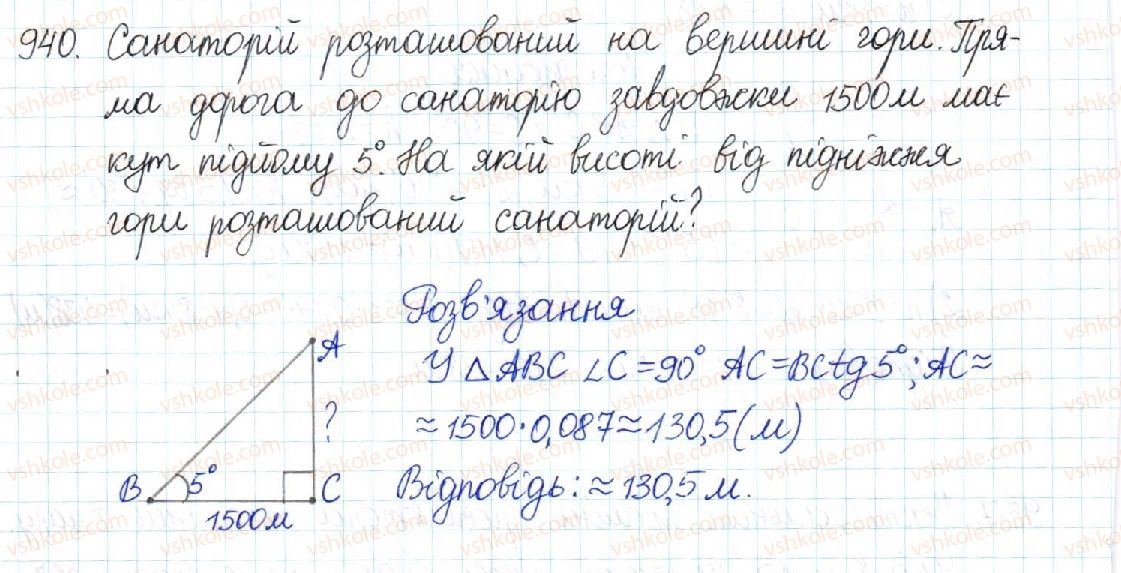 940. Санаторій розташований на вершині гори. Пря-
ма дорога до санаторію завдовжки 1500м має
кут підйому 5°. На якій висоті від підніжжя
гори розташований санаторій?
Розв'язання
У △ABC ∠C=90° AC=BCtg5°; AC≈
≈1500·0,087≈130,5(м)
Відповідь: ≈130,5м.
A
?
B 5° C
1500м
vshkole.com